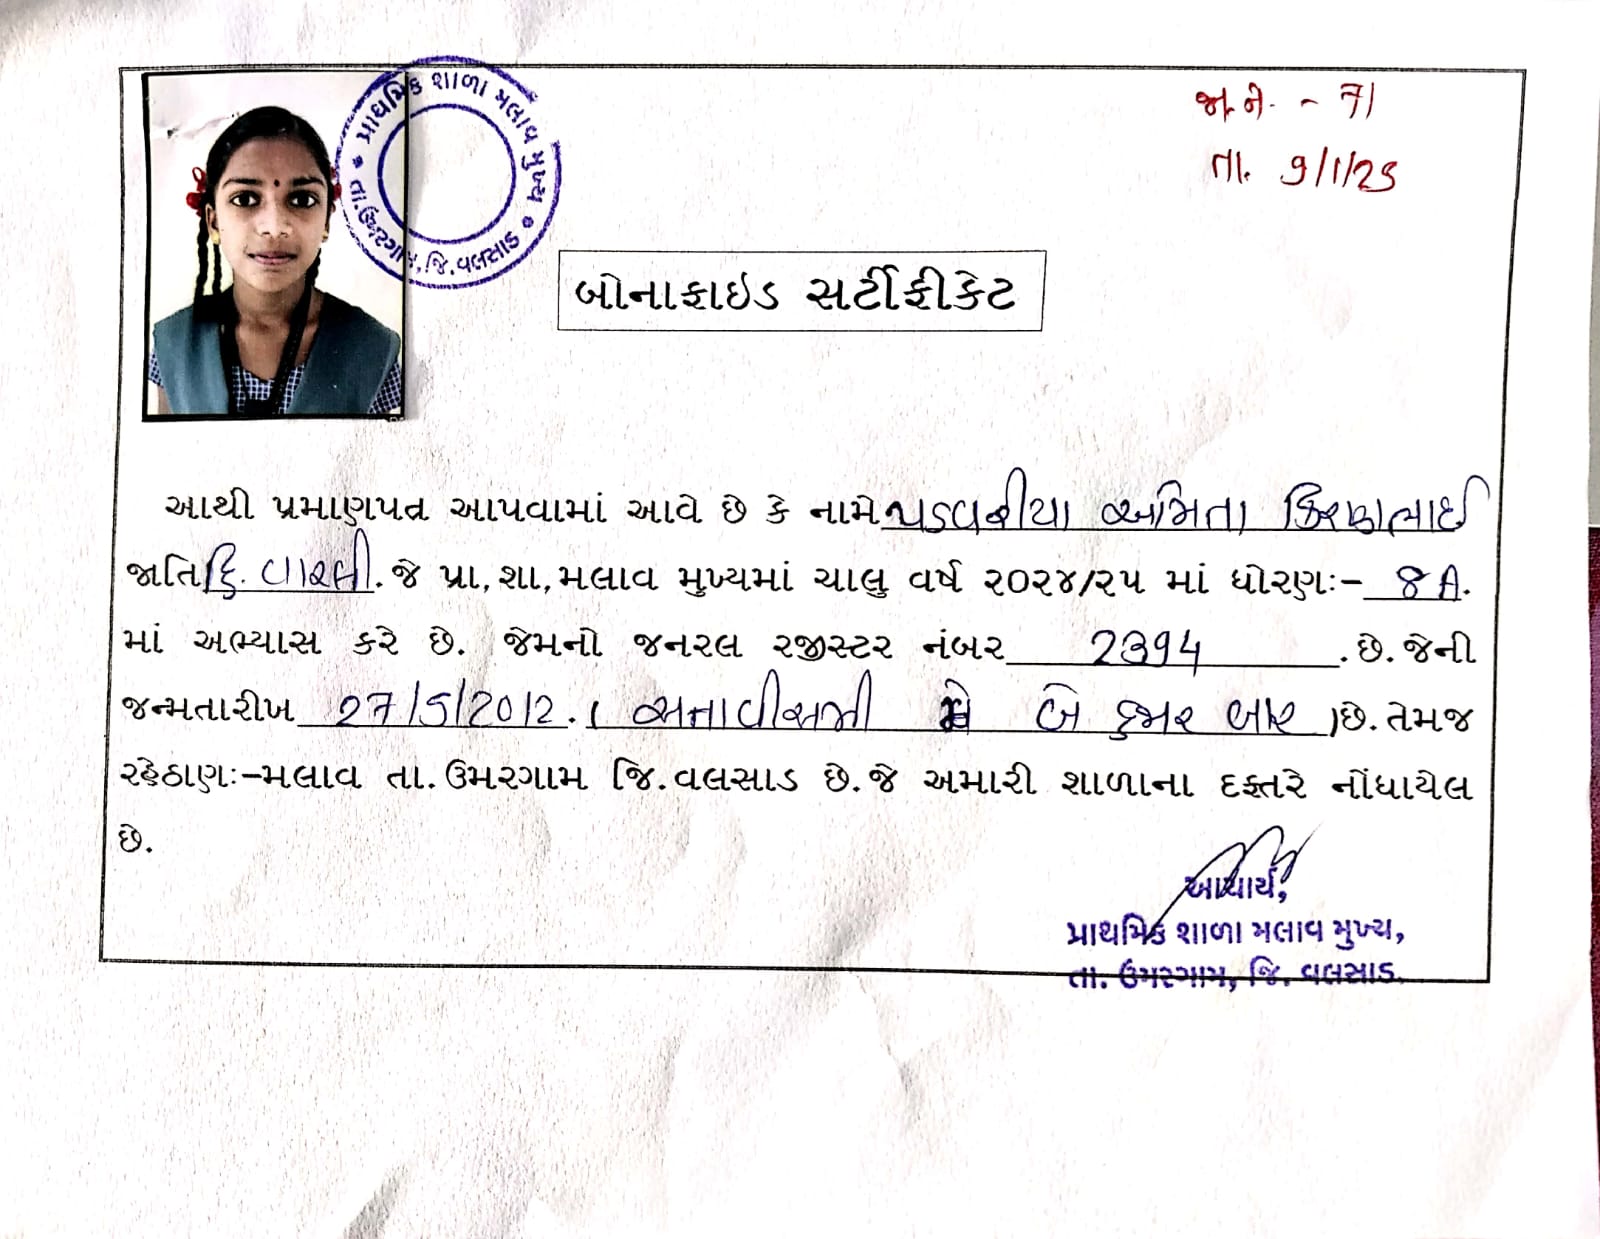 પ્રાથમિક શાળા મલાવ મુખ્ય
તા.ઉમરગામ, જિ.વલસાડ
જા નં. - 71
તા. 9/1/25
બોનાફાઇડ સર્ટીફીકેટ
આથી પ્રમાણપત્ર આપવામાં આવે છે કે નામે પડવળીયા અમિતા કિરણભાઈ
જાતિ હિ. વારલી. જે પ્રા,શા,મલાવ મુખ્યમાં ચાલુ વર્ષ ૨૦૨૪/૨૫ માં ધોરણઃ- 8 A.
માં અભ્યાસ કરે છે. જેમનો જનરલ રજીસ્ટર નંબર 2394 .છે.જેની
જન્મતારીખ 27/5/2012. ( સત્તાવીસમી મે બે હજાર બાર )છે.તેમજ
રહેઠાણઃ-મલાવ તા.ઉમરગામ જિ.વલસાડ છે.જે અમારી શાળાના દફ્તરે નોંધાયેલ
છે.
આચાર્ય,
પ્રાથમિક શાળા મલાવ મુખ્ય,
તા. ઉમરગામ, જિ. વલસાડ.